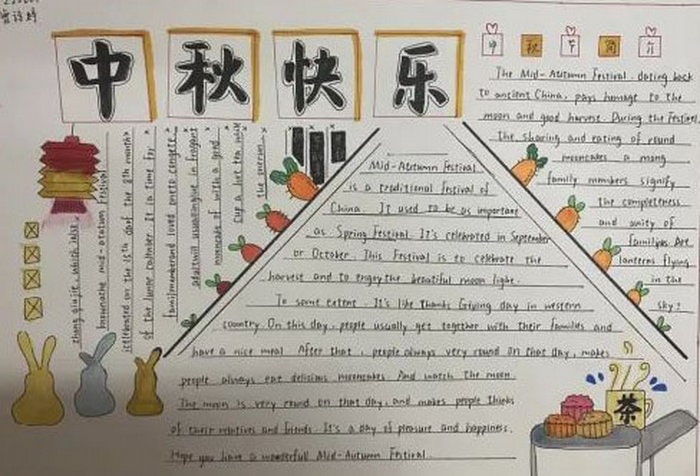 中秋快乐
中秋节简介
The Mid-Autumn Festival, dating back
to ancient China, pays homage to the
moon and good harvest. During the Festival,
the sharing and eating of round
mooncakes a mong
family members signify
the completeness
and unity of
families. Are
lanterns flying
in the
sky?
Mid-Autumn Festival
is a traditional festival of
China. It used to be as important
as Spring Festival. It's celebrated in September
or October. This Festival is to celebrate the
harvest and to enjoy the beautiful moon light.
To some extent, It's like Thanks Giving day in western
country. On this day, people usually get together with their families and
have a nice meal. After that, people always very round on that day, makes
people always eat delicious mooncakes. And watch the moon.
The moon is very round on that day, and makes people thinks
of their relatives and friends. It's a day of pleasure and happiness.
Hope you have a wonderfull Mid-Autumn Festival
zhong qiu jie, which is
mid-autumn festival,
celebrated on the 15th day of the 8th month
of the lunar It is time for
family and loved
in fragant
mooncake of with a good
cup a hot tea, while
the
茶